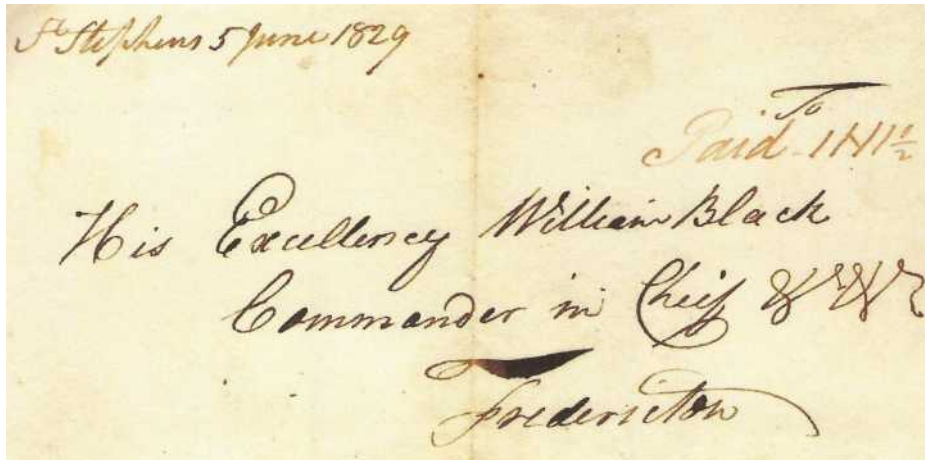 St Stephens 5 June 1829
To
Paid 1N1½
His Excellency William Black
Commander in Cheif &c &c &c
Fredericton